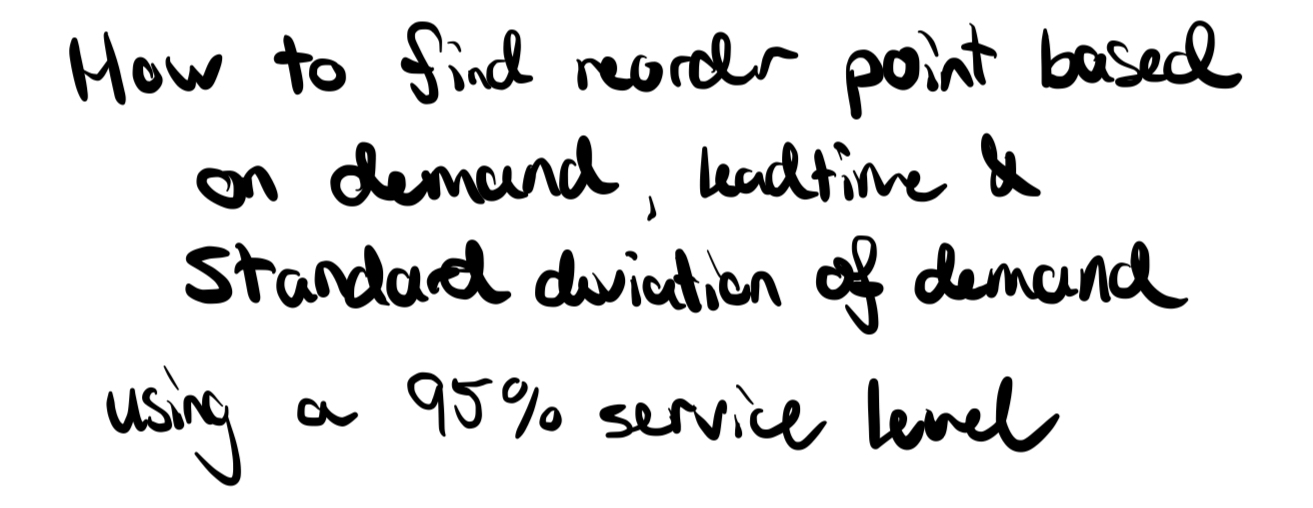 How to find reorder point based
on demand, leadtime &
Standard deviation of demand
using a 95% service level